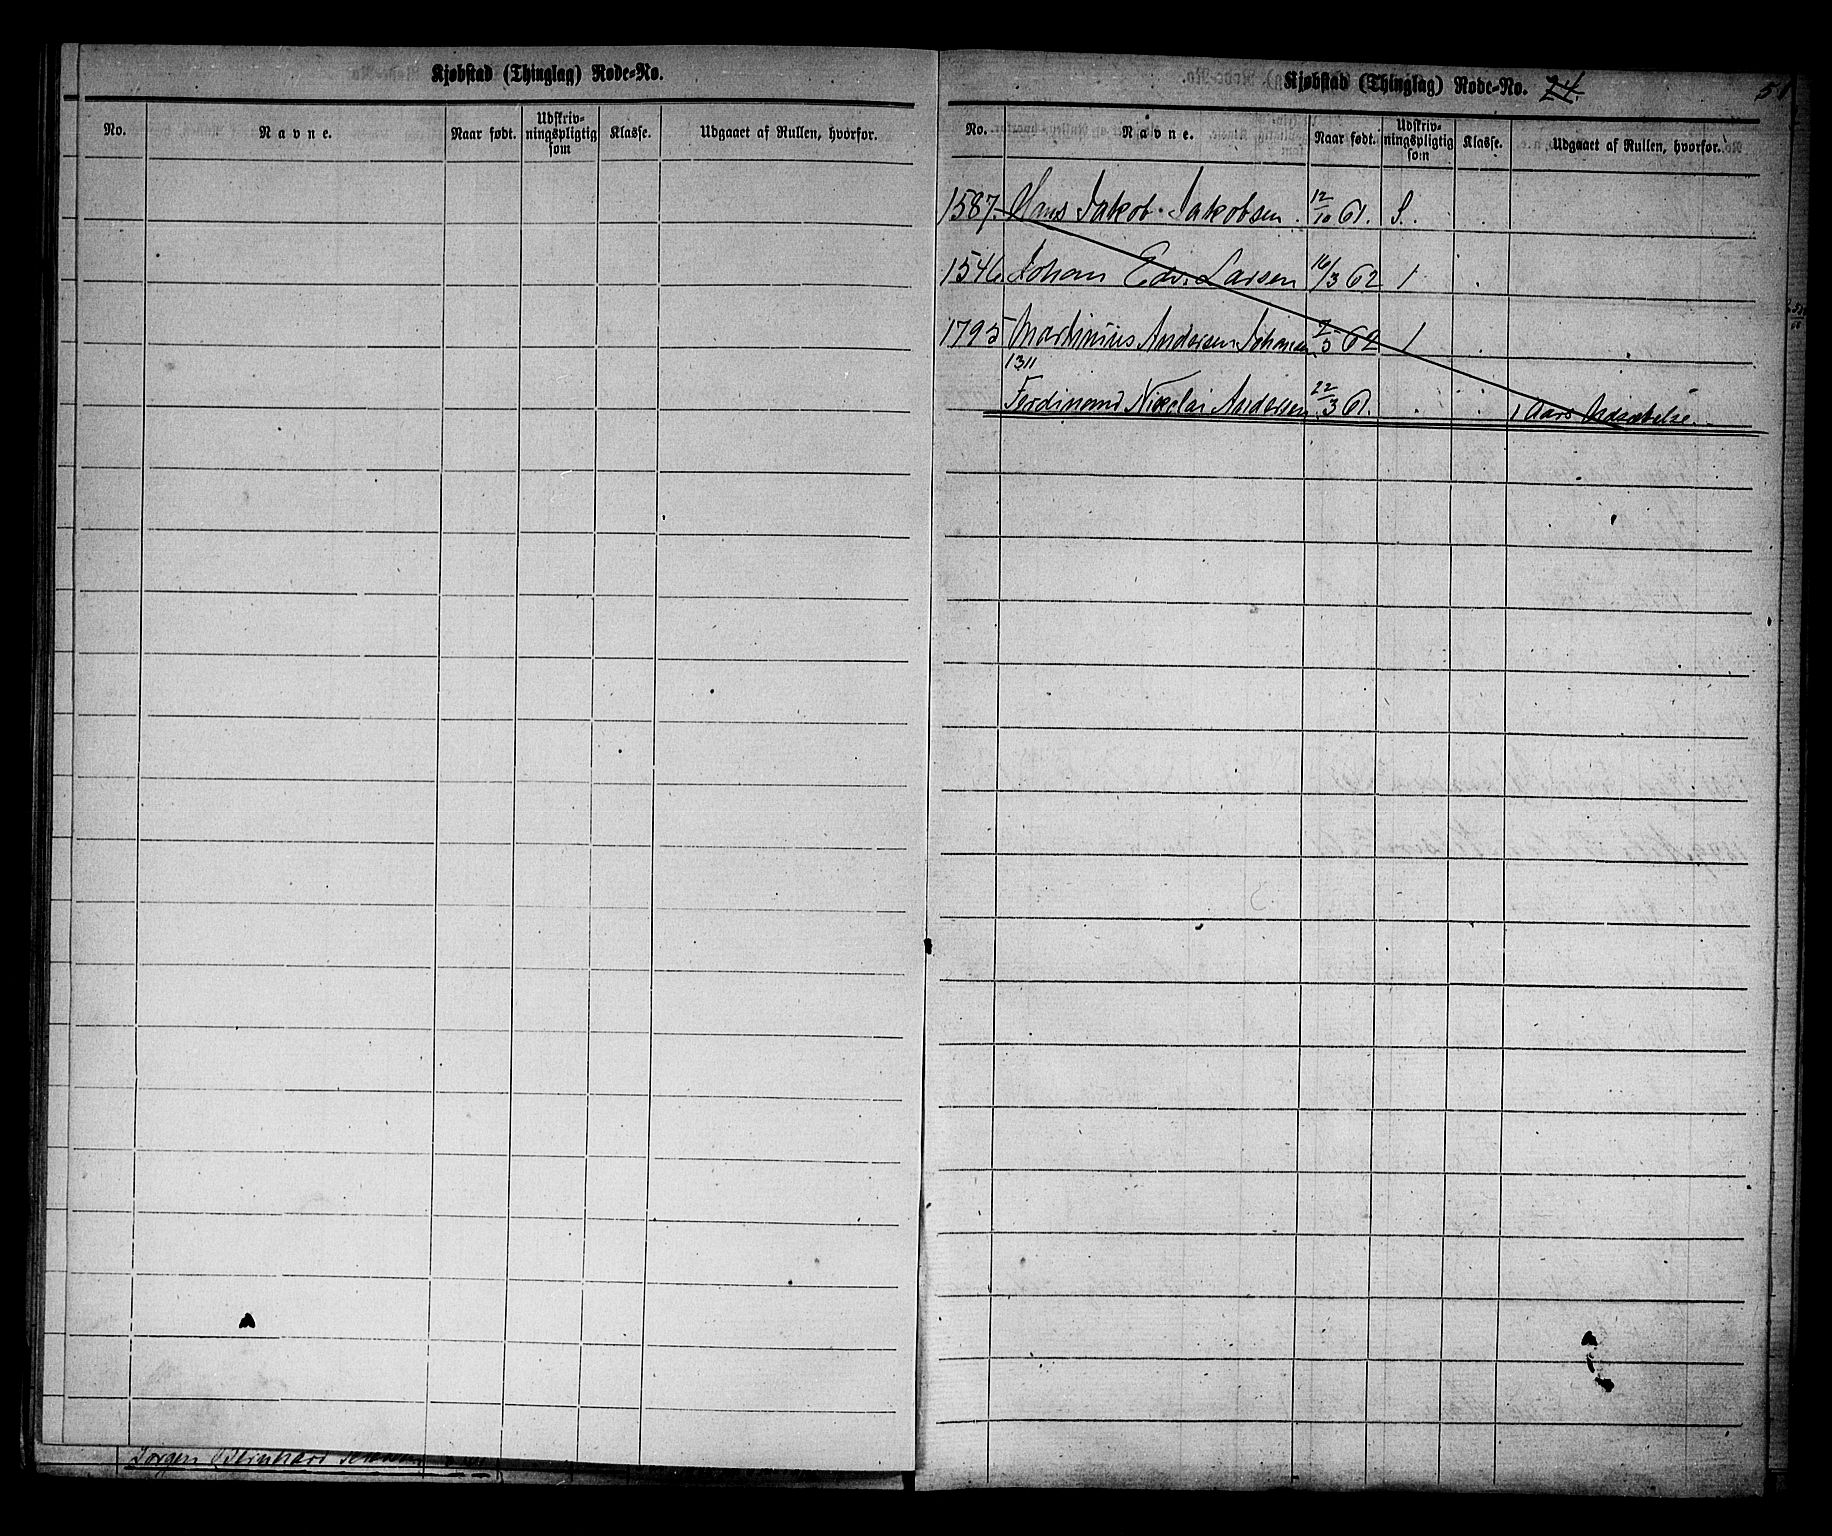 Kjøbstad (Thinglag) Rode-No.
No. Navne. Naar født. Udskriv-ningspligtig som Klasse. Udgaaet af Rullen, hvorfor.
Kjøbstad (Thinglag) Rode-No. 24. 51
No. Navne. Naar født. Udskriv-ningspligtig som Klasse. Udgaaet af Rullen, hvorfor.
1587. Hans Jakob Jakobsen. 12/10 61. S.
1546. Johan Edv. Larsen 16/3 62 1
1795 Martinius Andersen Johansen 2/5 62 1
1311
Ferdinand Nicolai Andersen 22/3 61. 1 Aars Udsættelse.
Jørgen Bernhard